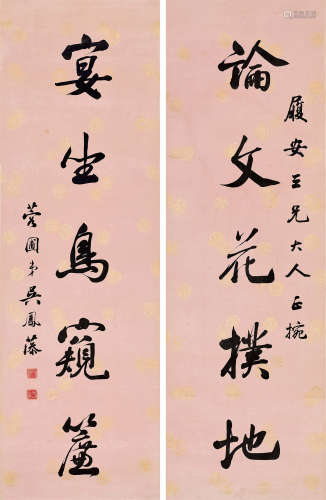 論文花撲地
履安三兄大人正捥
宴坐鳥窺簾
菅園弟吳鳳藻